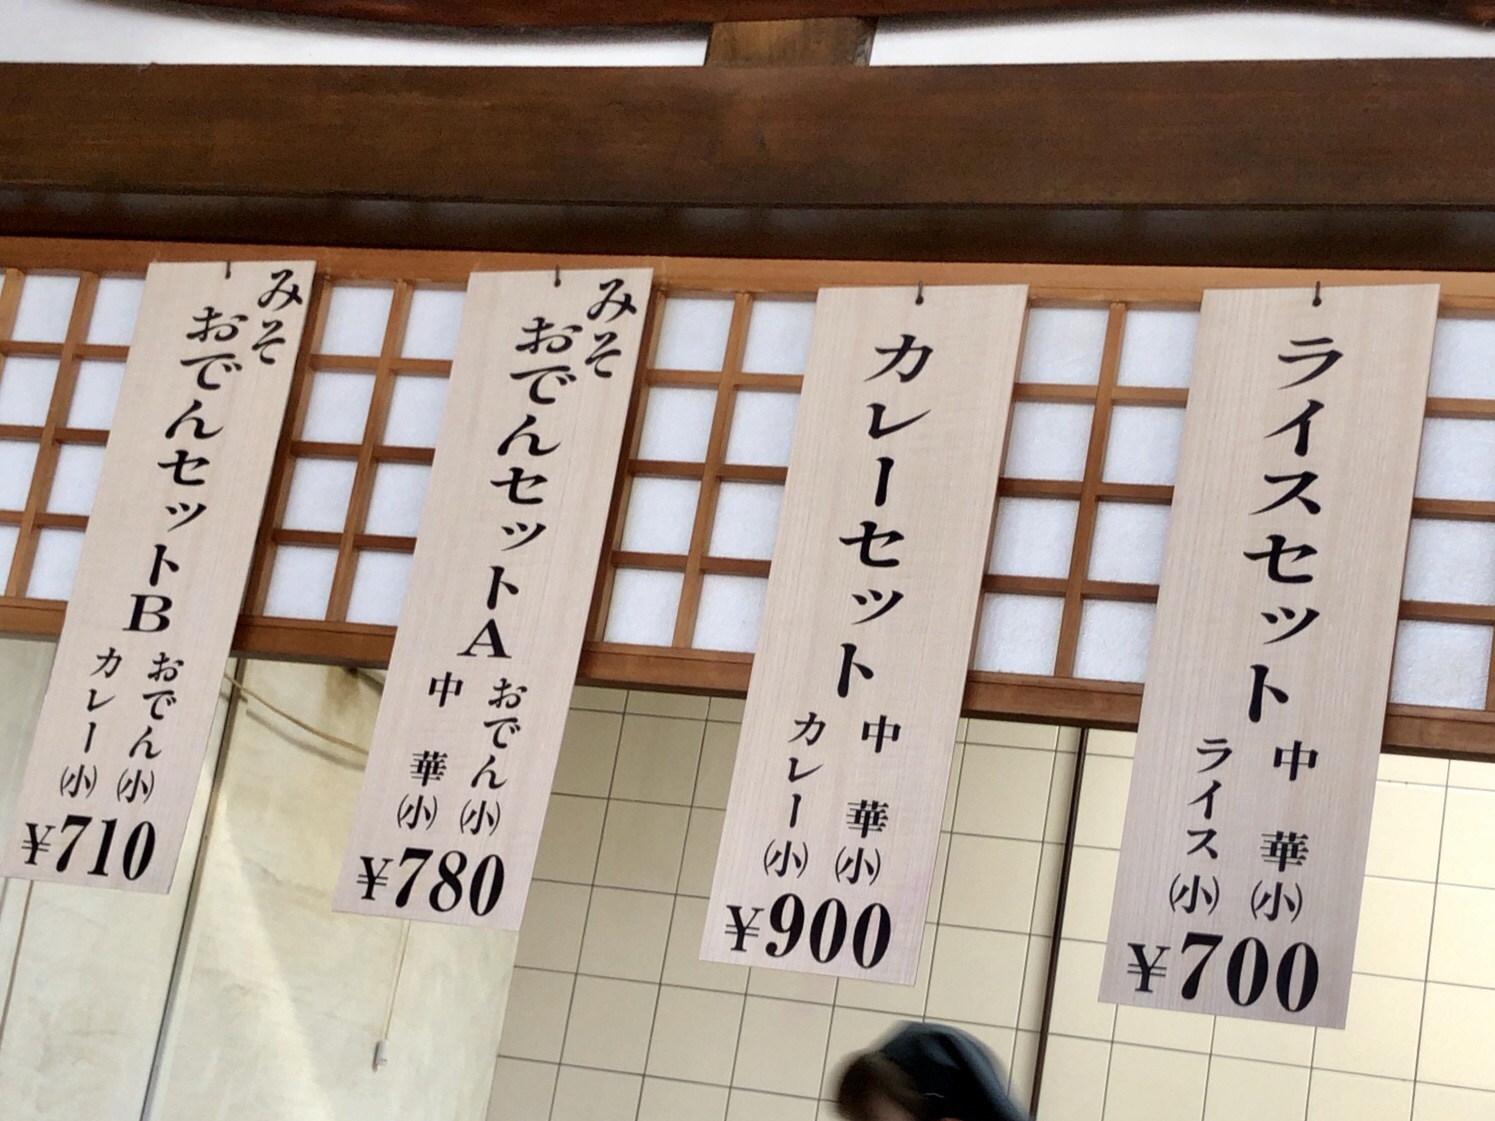 ライスセット
中華(小)
ライス(小)
¥700
カレーセット
中華(小)
カレー(小)
¥900
みそ
おでんセットA
おでん(小)
中華(小)
¥780
みそ
おでんセットB
おでん(小)
カレー(小)
¥710